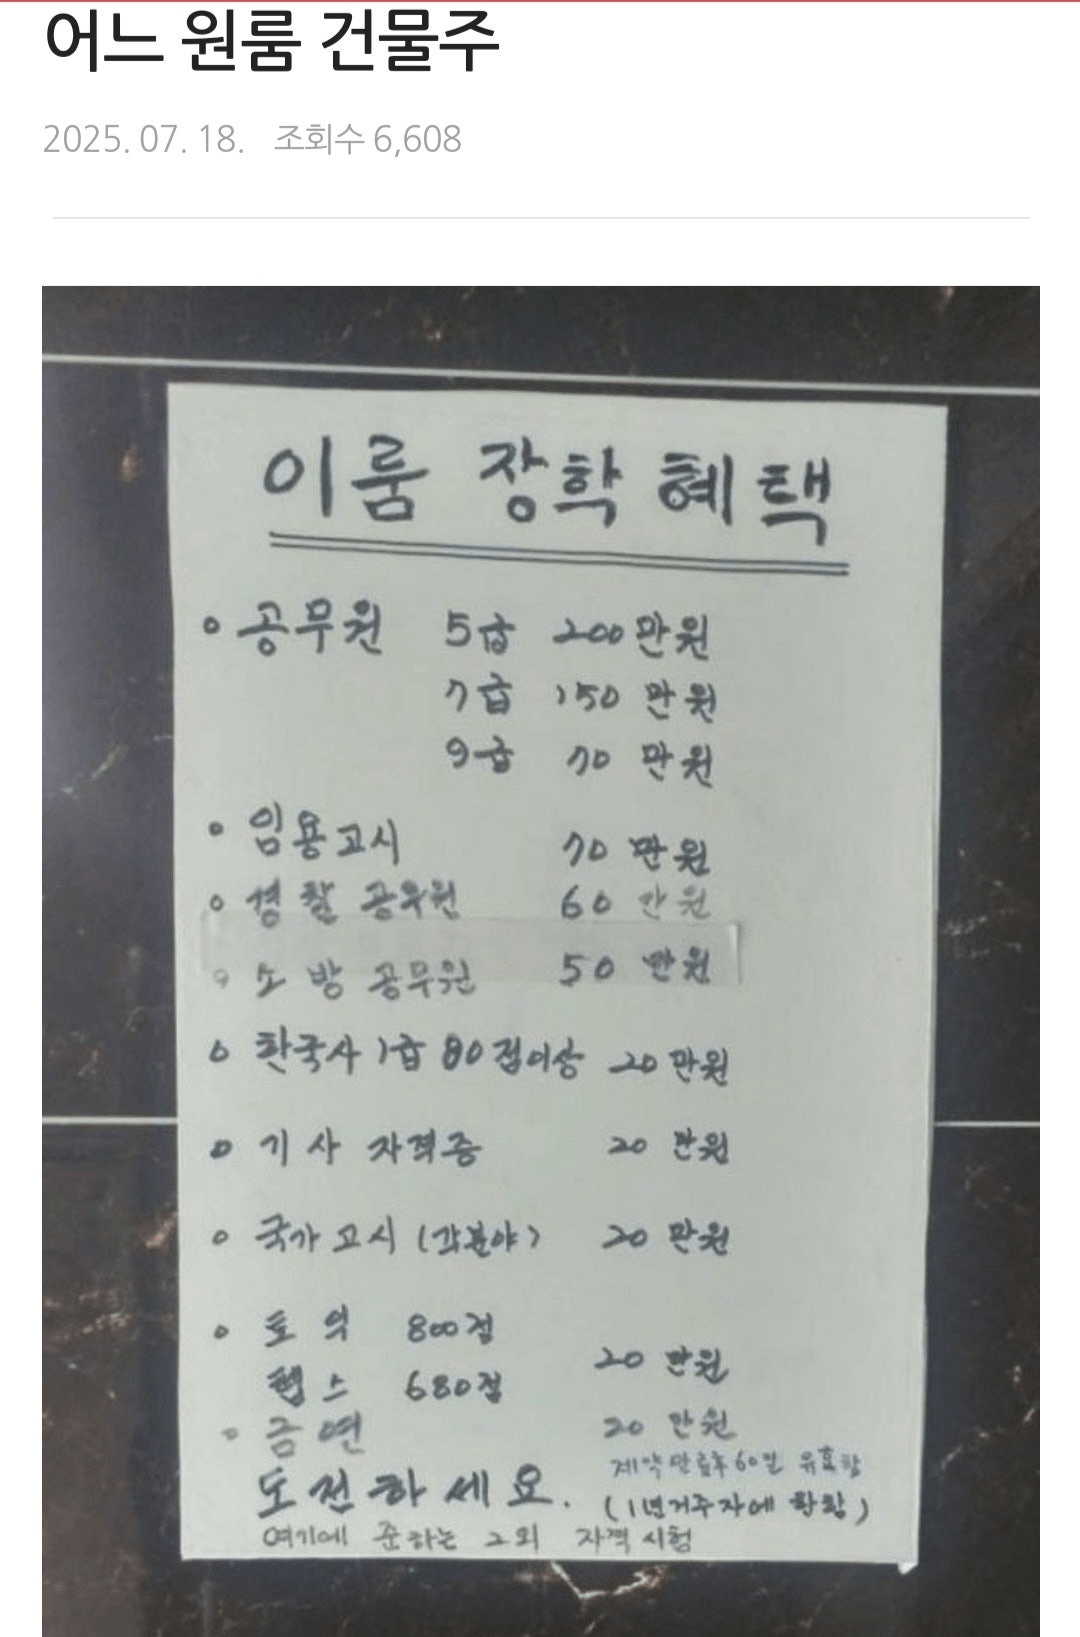 어느 원룸 건물주
2025. 07. 18. 조회수 6,608
이룸 장학 혜택
공무원 5급 200만원
7급 150만원
9급 70만원
임용고시 70만원
경찰 공무원 60만원
소방 공무원 50만원
한국사 1급 80점이상 20만원
기사 자격증 20만원
국가고시 (각분야) 20만원
토익 800점
텝스 680점 20만원
금연 20만원
계약만료후 60일 유효함
도전하세요.
(1년거주자에 한함)
여기에 준하는 그외 자격시험